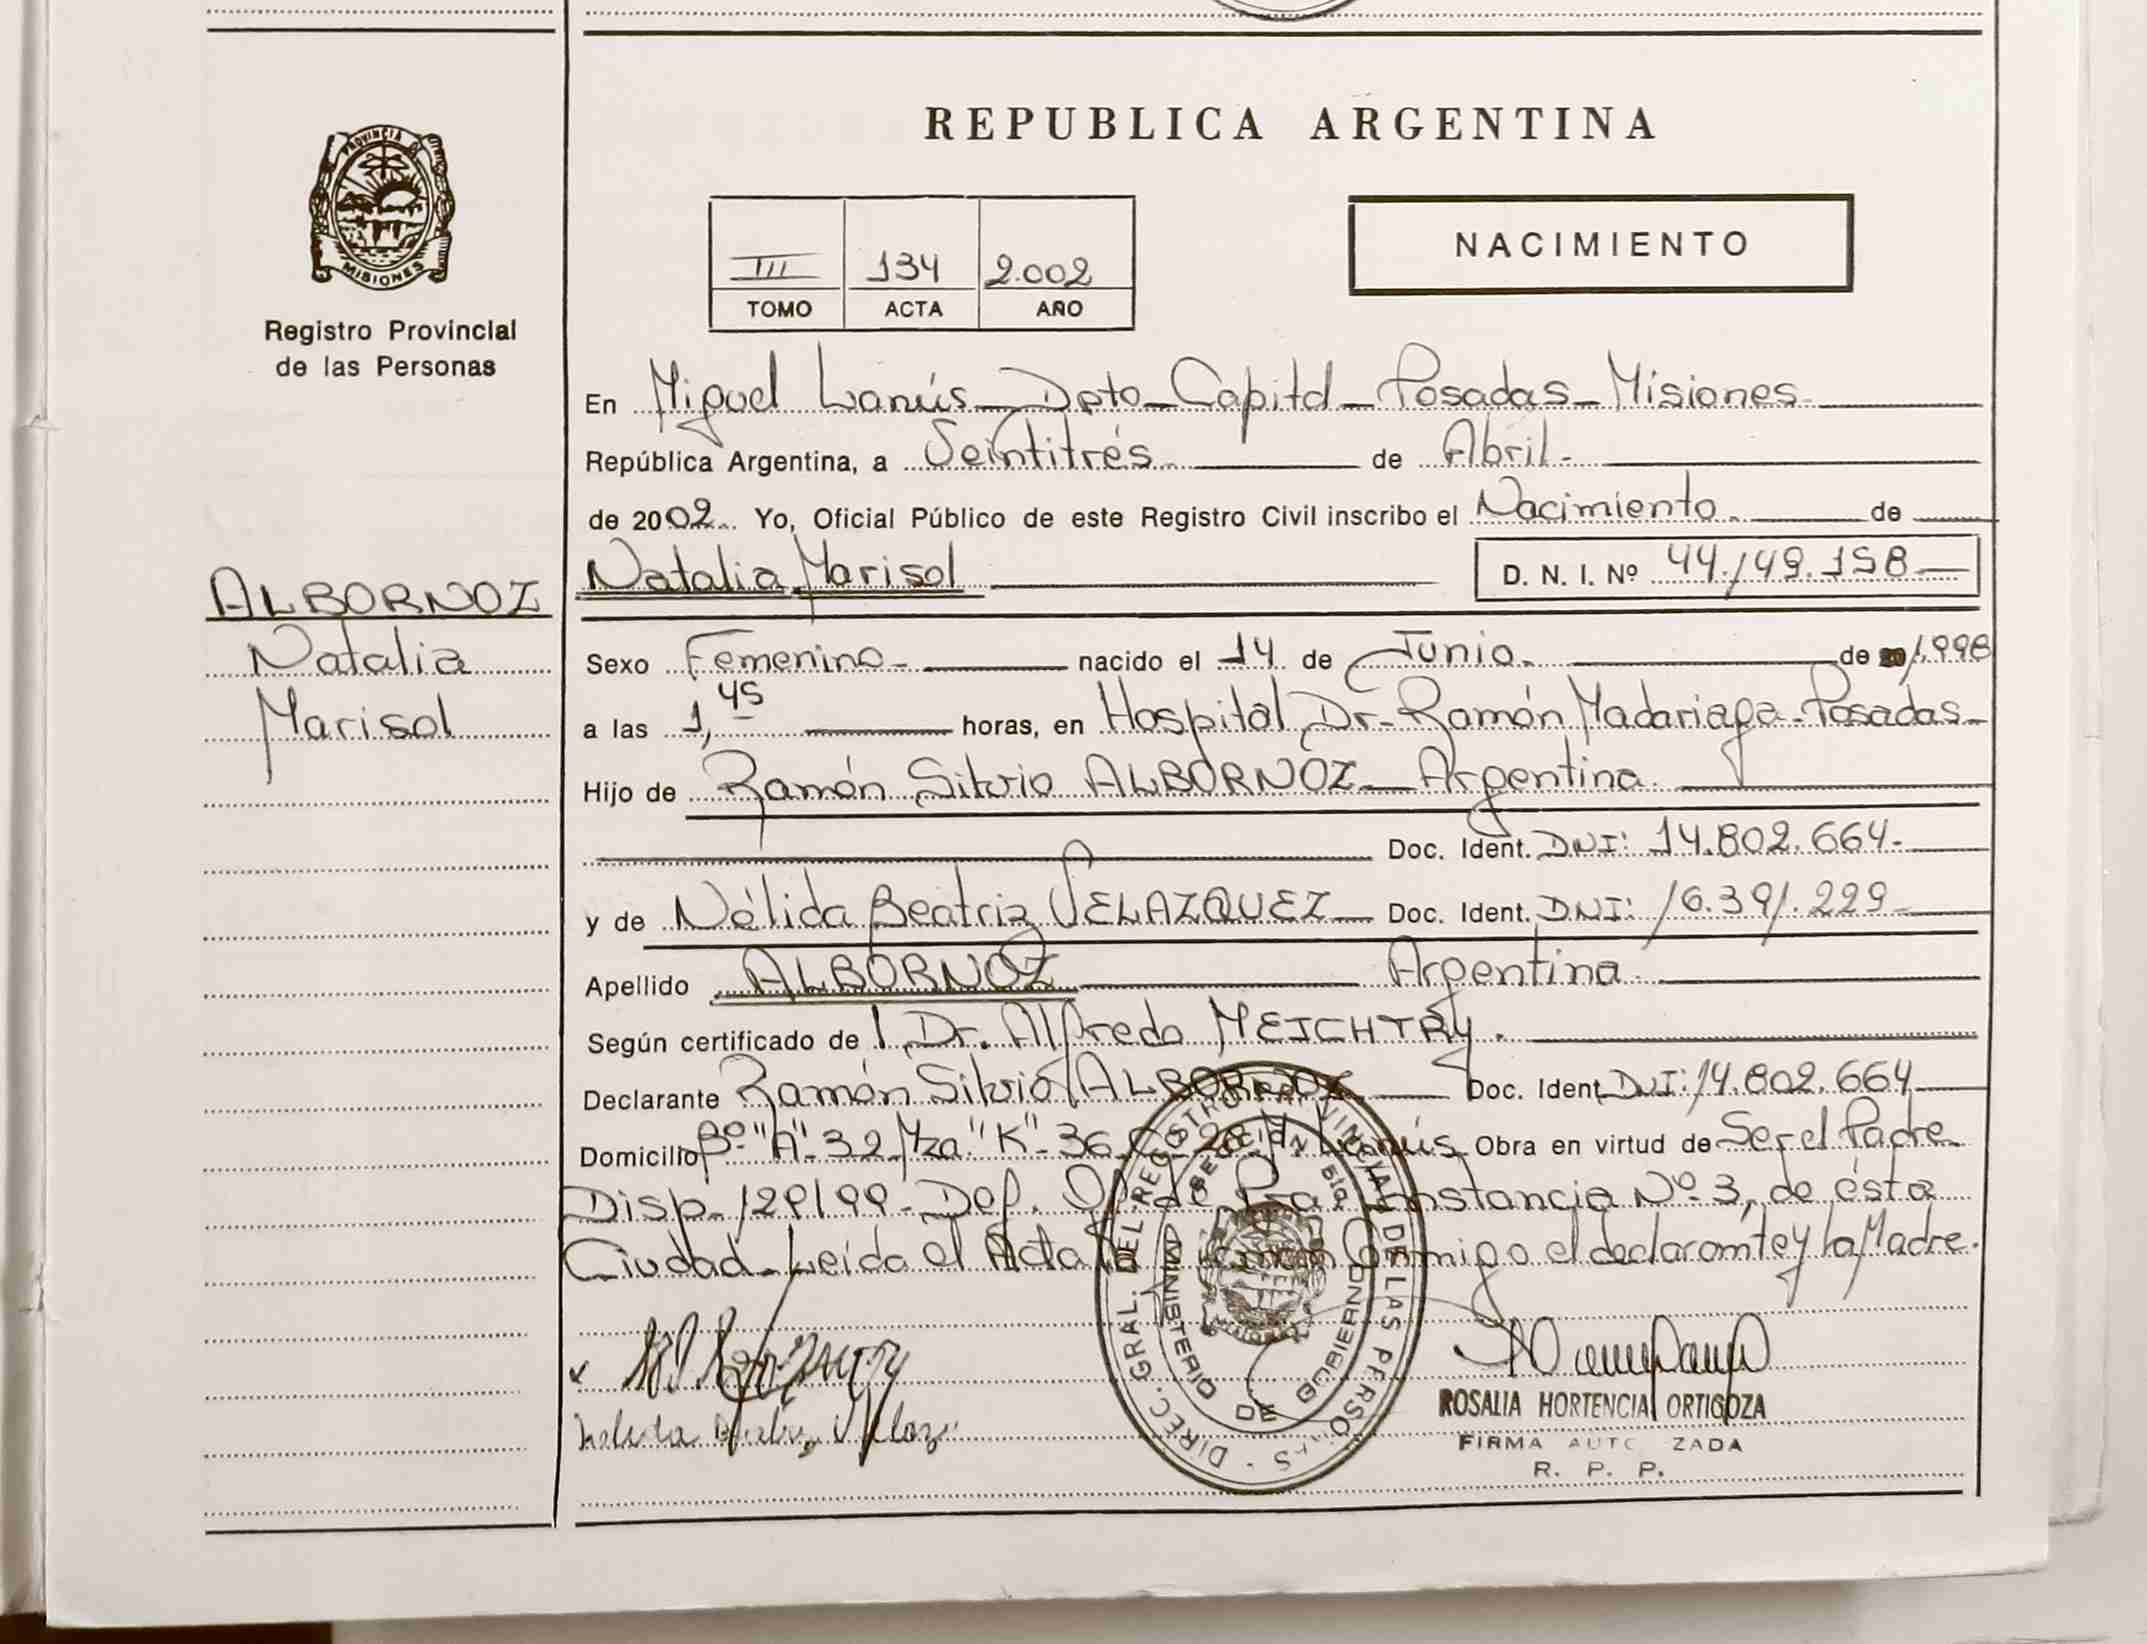 REPUBLICA ARGENTINA
PROVINCIA DE MISIONES
Registro Provincial
de las Personas
NACIMIENTO
III 134 2.002
TOMO ACTA AÑO
En Miguel Lanús - Dpto - Capital - Posadas - Misiones
República Argentina, a Veintitrés de Abril.
de 2002. Yo, Oficial Público de este Registro Civil inscribo el Nacimiento de
Natalia Marisol D. N. I. Nº 44.149.158
ALBORNOZ
Natalia
Marisol
Sexo Femenino nacido el 14 de Junio de 20/1.998
a las 1,45 horas, en Hospital Dr. Ramón Madariaga - Posadas
Hijo de Ramón Silvio ALBORNOZ - Argentina.
Doc. Ident. DNI: 14.802.664.
y de Nélida Beatriz VELAZQUEZ Doc. Ident. DNI: 16.391.229
Apellido ALBORNOZ Argentina
Según certificado de l Dr. Alfredo MEICHTRY.
Declarante Ramón Silvio ALBORNOZ Doc. Ident. DNI: 14.802.664
Domicilio Bº "A" - 32 Mza "K" - 36 Lanús Obra en virtud de Ser el Padre
Disp. 129/99 - Def. Of. de Instancia Nº 3, de ésta
Ciudad - Leída el Acta la conmigo el declarante y la Madre.
DIREC. GRAL. DEL REGISTRO PROVINCIAL DE LAS PERSONAS
MINISTERIO DE GOBIERNO
ROSALIA HORTENCIA ORTIGOZA
FIRMA AUTO ZADA
R. P. P.